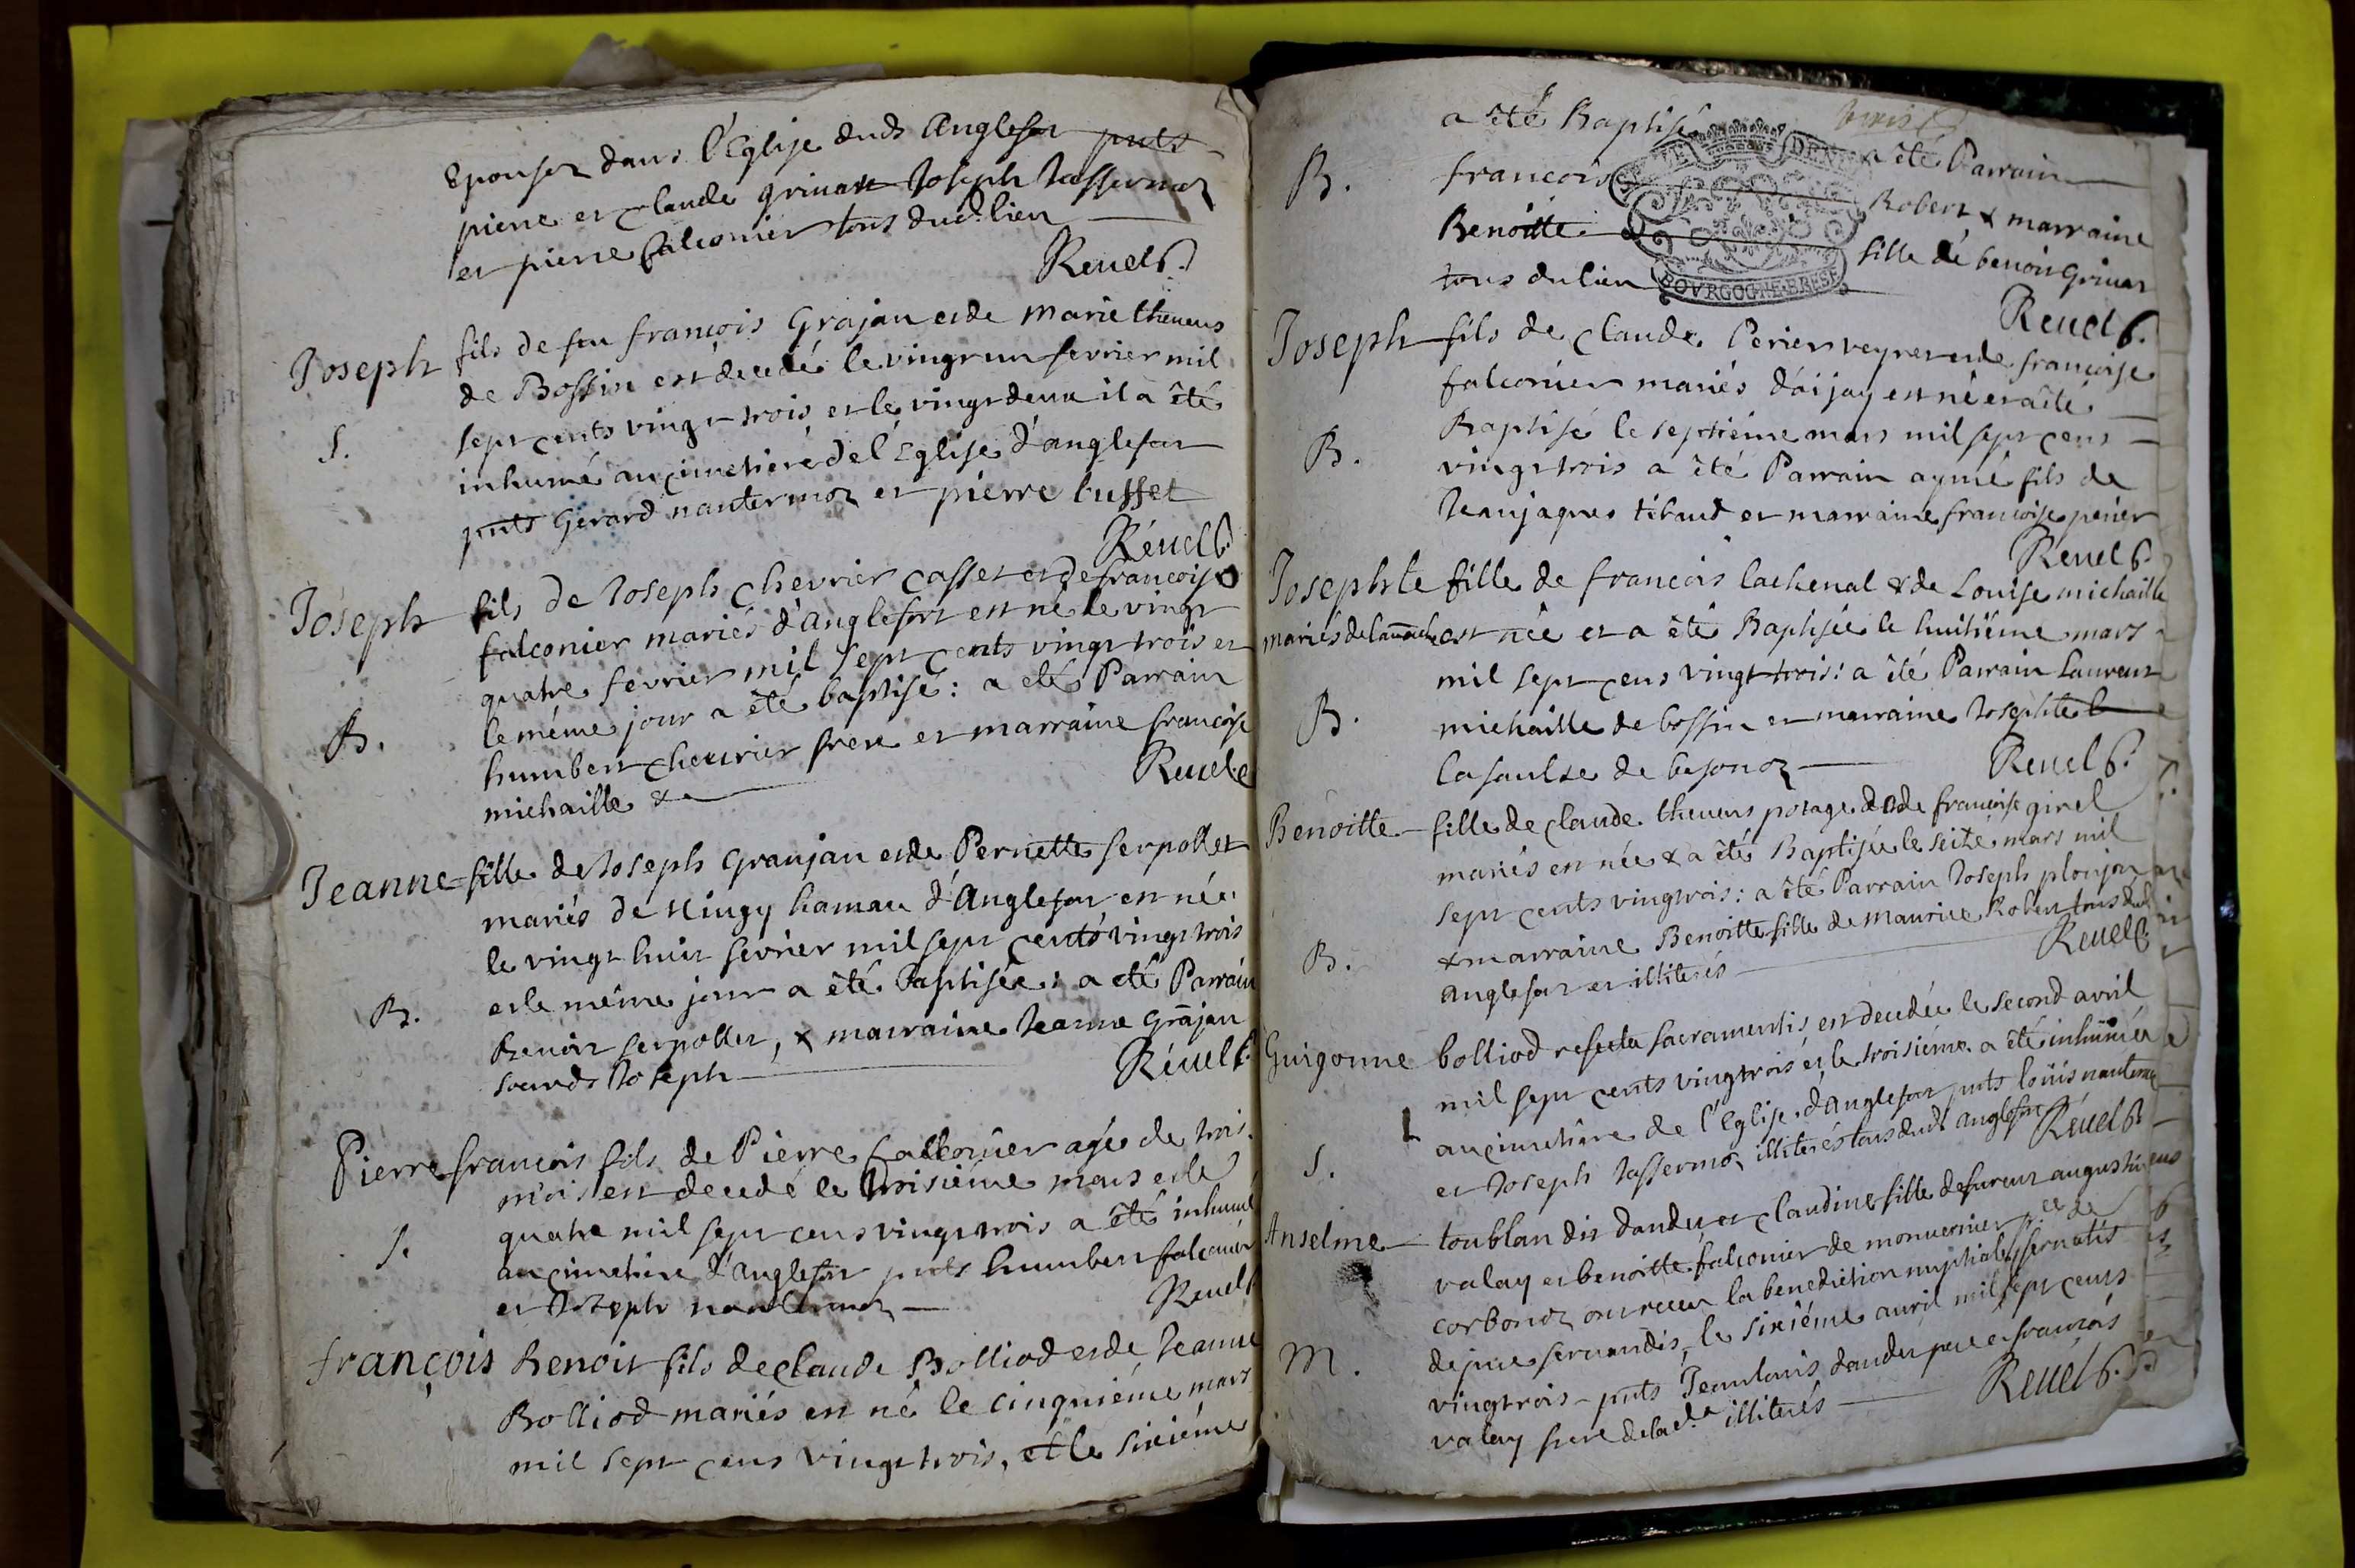 Epouser dans l'Eglise dudt Anglefor pnts
pierre et Claude grinan Joseph Tassermoz
et pierre falconier tous dud. lieu
Reuel C.
Joseph fils de feu françois Grajan et de Marie thevens
de Bossin est decedé le vingt un fevrier mil
S.
sept cents vingt trois et le vingt deux il a êté
inhumé au cimetiere de l'Eglise d'anglefort
pnts Gerard nantermoz et pierre busset
Reuel C.
Joseph fils de Joseph Chevrier Casset et de françoise
falconier mariés d'Anglefort est né le vingt
quatre fevrier mil sept cents vingt trois et
B.
le même jour a êté baptisé : a eté Parrain
humbert Chevrier frere et marraine françoise
michaille &
Reuel C
Jeanne fille de Joseph Granjan et de Pernette serpollet
mariés de hamau d'Anglefort est née
le vingt huit fevrier mil sept cents vingt trois
B.
et le même jour a êté Baptisée : a eté Parrain
Benoit serpollet, & marraine Jeanne Grajan
Joseph
Reuel C.
Pierre françois fils de Pierre falconier agée de trois
mois est decedé le troisiéme mars et le
S.
quatre mil sept cens vingt trois a êté inhumé
au cimetiere d'Anglefort pnts humbert falconier
et Joseph nantermoz
Reuel C
François Benoit fils de Claude Bolliod et de Jeanne
Bolliod mariés est né le cinquiéme mars
mil sept cens vingt trois, et le sixiéme
a êté Baptisé
B.
francois a êté Parrain
Benoitte Robert & marraine
tous du lieu fille de benoit Grinan
BOVRGOGNE BRESSE
Reuel C.
Joseph fils de Claude Perier veyret et de françoise
falconier mariés d'aijay est né et a êté
B.
Baptisé le septiéme mars mil sept cens
vingt trois a êté Parrain aymé fils de
Jean jaques tibaud et marraine françoise perier
Reuel C.
Josephte fille de francois lachenal & de Louise michaille
mariés de est née et a êté Baptisée le huitiéme mars
mil sept cens vingt trois : a êté Parrain Laurent
B.
michaille de bossin et marraine Josephte
lasaulse de besonoz
Reuel C.
Benoitte fille de Claude thevens potage & de francoise girel
mariés est née & a êté Baptisée le seize mars mil
sept cents vingtrois : a êté Parrain Joseph plonjon
B.
& marraine Benoitte fille de Maurice Robert tous dud
Anglefort et illiterés
Reuel C.
Guigonne bolliod refecta sacramentis est decedée le second avril
mil sept cents vingtrois et le troisiéme a êté inhumée
au cimetiere de l'Eglise d'Anglefort pnts loüis nantermoz
S.
et Joseph Tassermoz illiterés tous dudt anglefort
Reuel C.
Anselme toublan dit dandu et Claudine fille de augustin
valay et benoitte falconier de de
corbonoz ont receu la benediction nuptiale servatis
M.
de jure servandis, le sixiéme avril mil sept cens
vingtrois - pnts Jean louis dandu pere et françois
valay frere de lad.e illiterés
Reuel C.